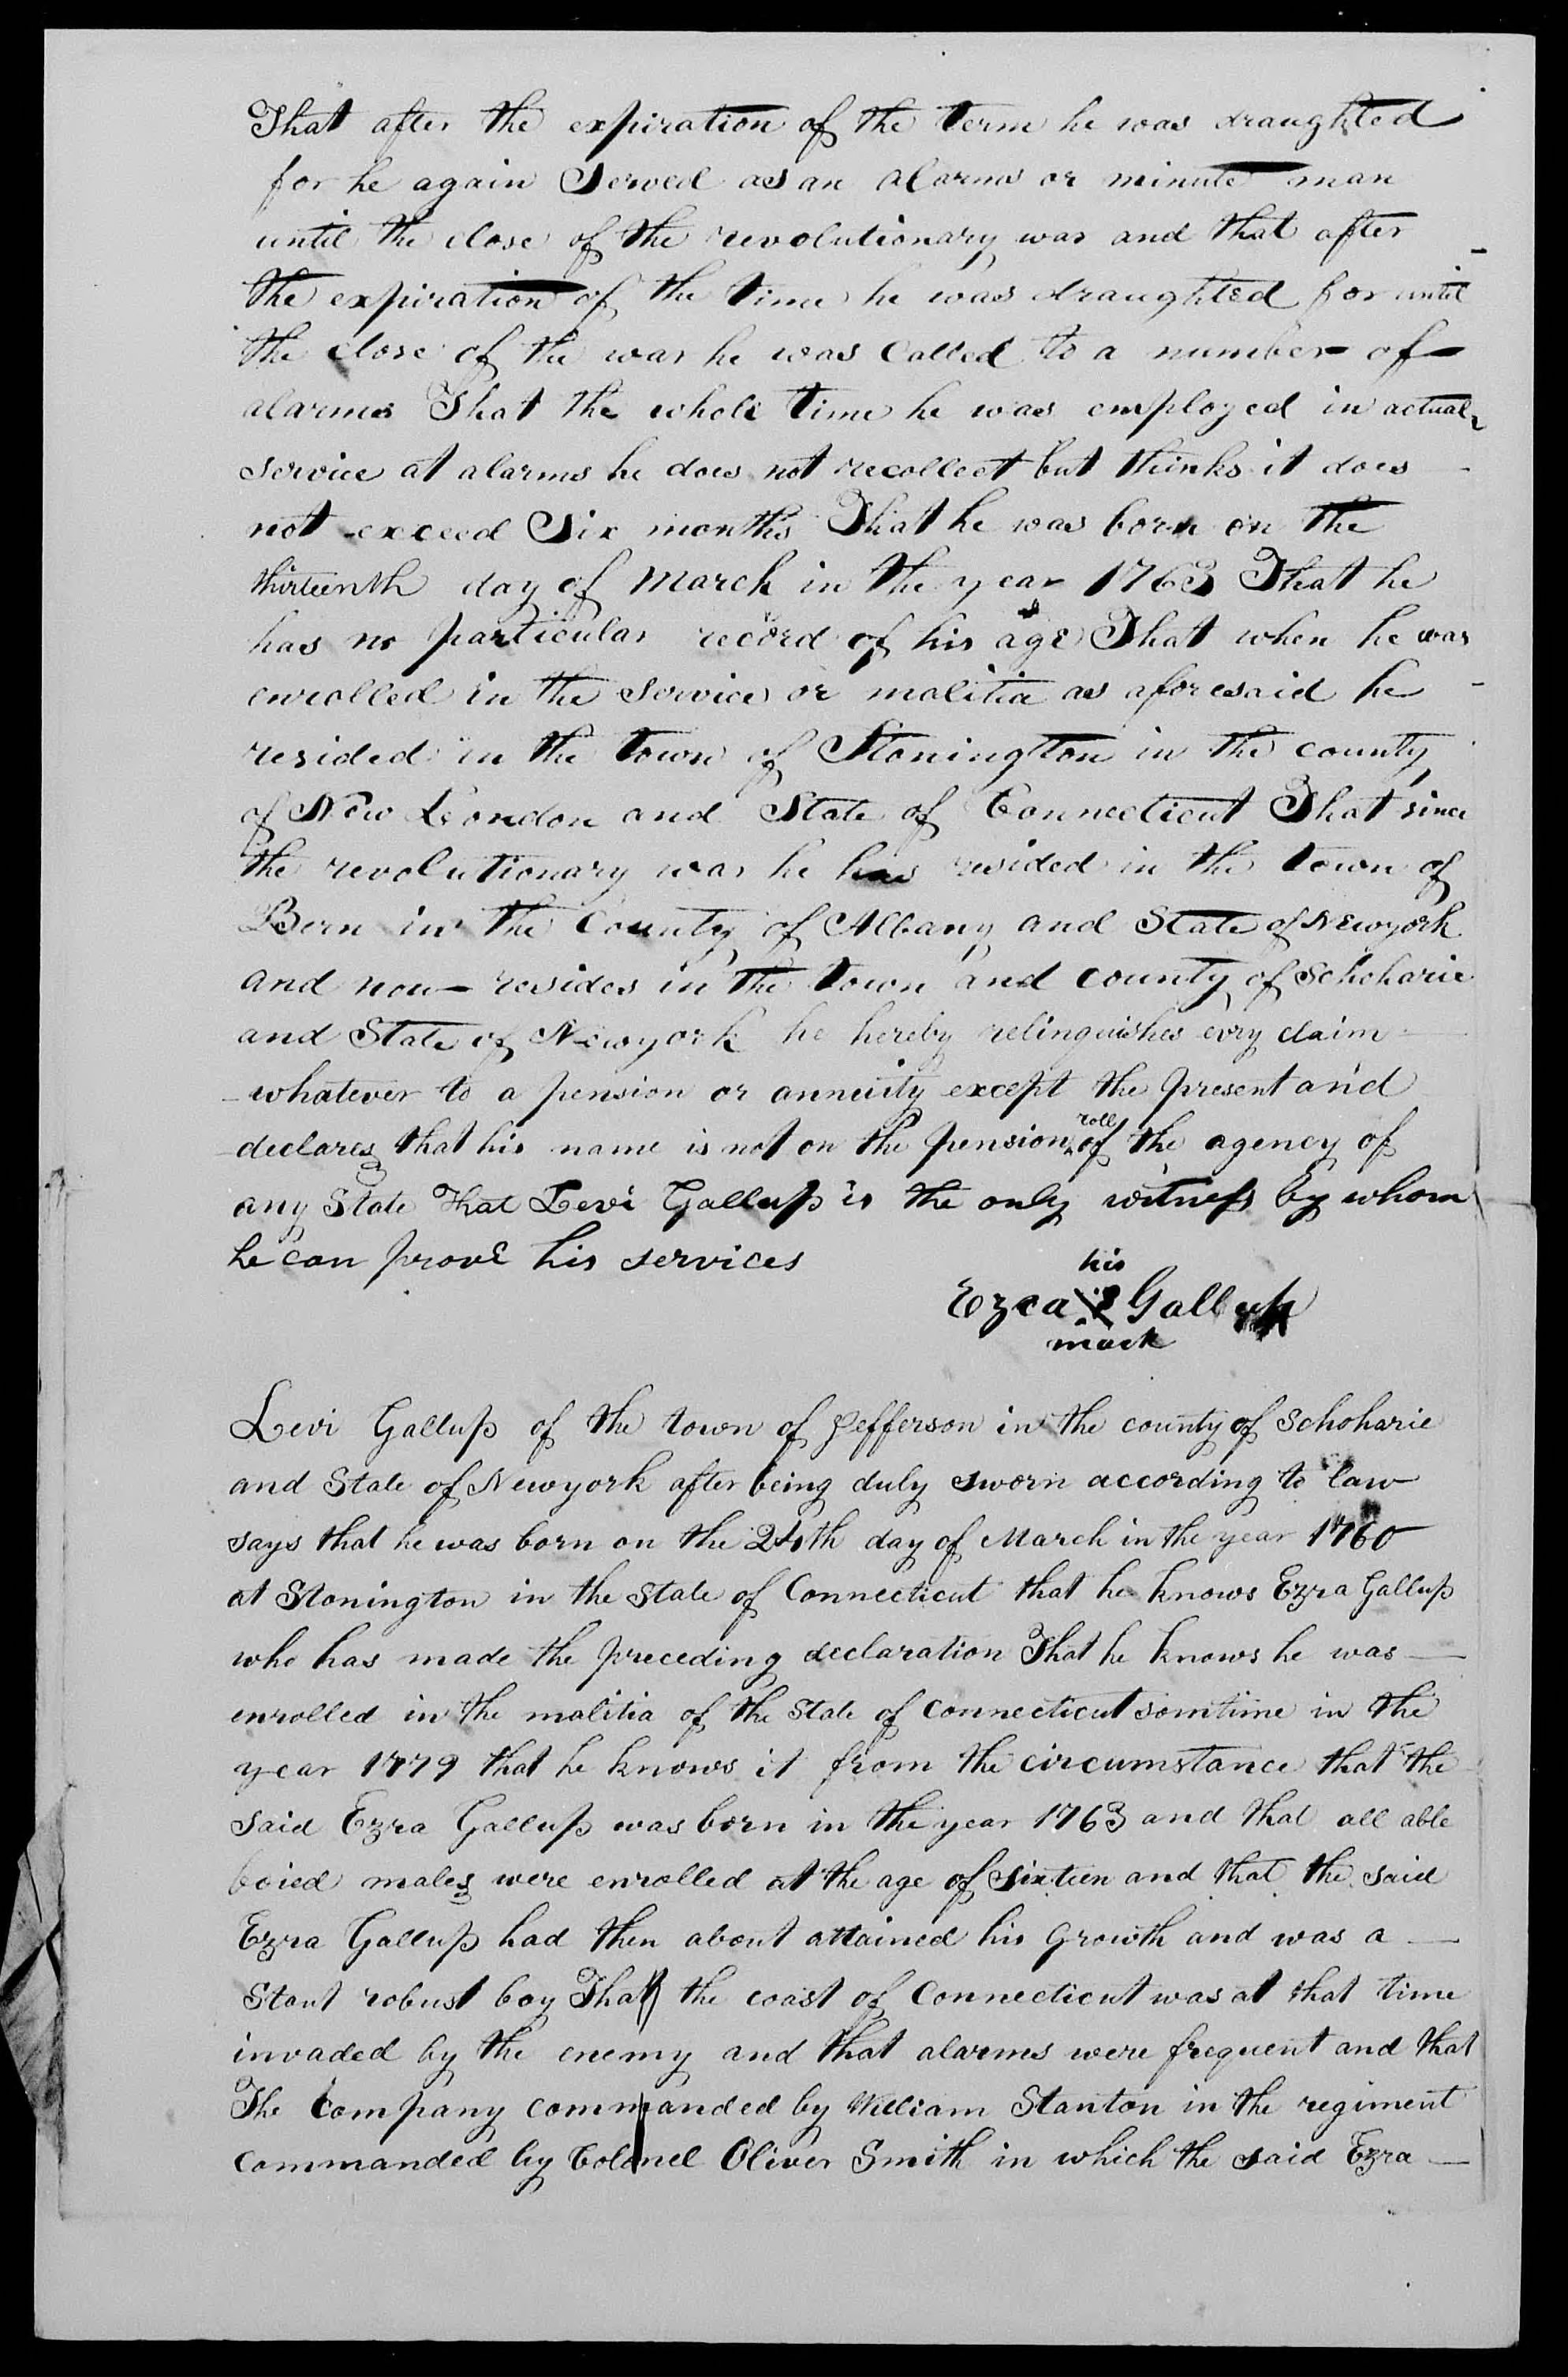 That after the expiration of the term he was draughted
for he again Served as an alarms or minute man
until the close of the revolutionary war and that after
the expiration of the time he was draughted for until
the close of the war he was Called to a number of
alarms That the whole time he was employed in actual
service at alarms he does not recollect but thinks it does
not exceed Six months That he was born on the
thirteenth day of March in the year 1763 That he
has no particular record of his age That when he was
enrolled in the Service or malitia as aforesaid he
resided in the town of Stonington in the county
of New London and State of Connecticut That since
the revolutionary war he has resided in the town of
Bern in the County of Albany and State of Newyork
and now resides in the town and county of Schoharie
and State of Newyork he hereby relinquishes evry claim
whatever to a pension or annuity except the present and
declares that his name is not on the pension roll of the agency of
any State That Levi Gallup is the only witness by whom
he can prove his services
his
Ezra X Gallup
mark
Levi Gallup of the town of Jefferson in the county of Schoharie
and State of Newyork after being duly sworn according to law
says that he was born on the 24th day of March in the year 1760
at Stonington in the State of Connecticut that he knows Ezra Gallup
who has made the preceding declaration That he knows he was
enrolled in the malitia of the State of Connecticut somtime in the
year 1779 that he knows it from the circumstance that the
said Ezra Gallup was born in the year 1763 and that all able
boied males were enrolled at the age of sixteen and that the said
Ezra Gallup had then about attained his growth and was a
Stout robust boy That the coast of Connecticut was at that time
invaded by the enemy and that alarms were frequent and that
The Company commanded by William Stanton in the regiment
commanded by Colonel Oliver Smith in which the said Ezra